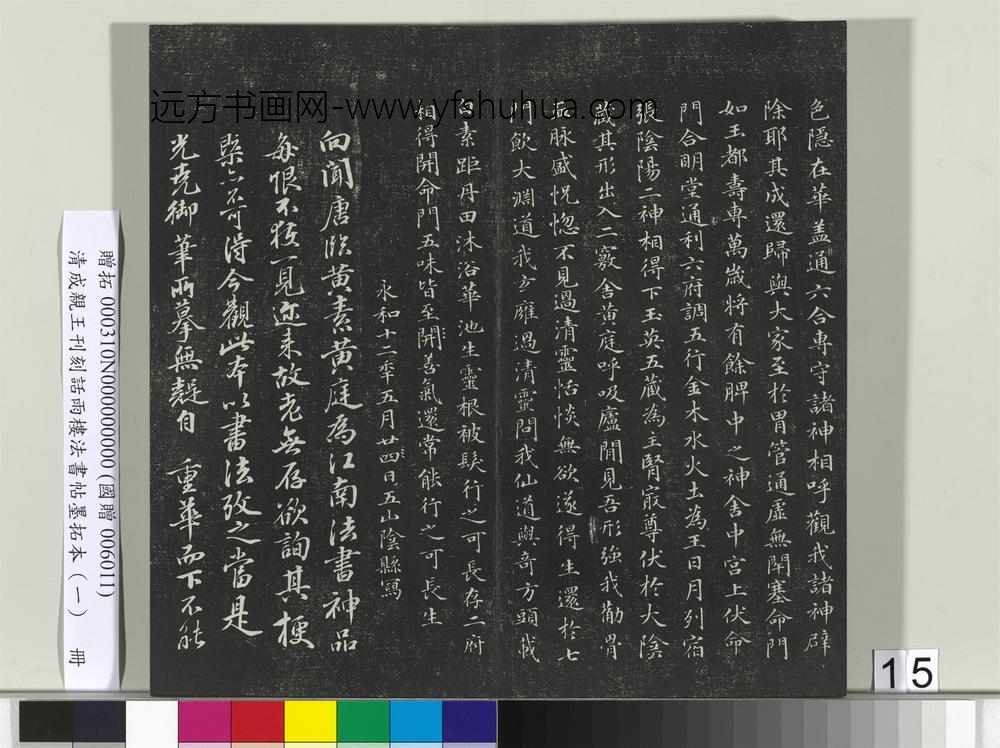 色隱在華盖通六合專守諸神相呼觀我諸神辟
除耶其成還歸與大家至於胃管通虛無閇塞命門
如玉都壽專萬歲將有餘脾中之神舍中宮上伏命
門合明堂通利六府調五行金木水火土為王日月列宿
張陰陽二神相得下玉英五藏為主腎寂尊伏於大陰
藏其形出入二竅舍黄庭呼吸廬間見吾形強我勸骨
血脉盛怳惚不見過清靈恬惔無欲遂得生還於七
門飲大淵道我玄廱過清靈問我仙道與奇方頭載
白素距丹田沐浴華池生靈根被髮行之可長存二府
相得開命門五味皆至開善氣還常能行之可長生
永和十二年五月廿四日五山陰縣寫
向聞唐臨黄素黄庭為江南法書神品
每恨不獲一見迩来故老無存欲詢其梗
槩亦不可得今觀此本以書法攷之當是
光堯御筆所摹無疑自 重華而下不能
远方书画网-www.yfshuhua.com
贈拓 000310N000000000(國贈 006011)
清成親王刊刻話雨樓法書帖墨拓本(一) 冊
15